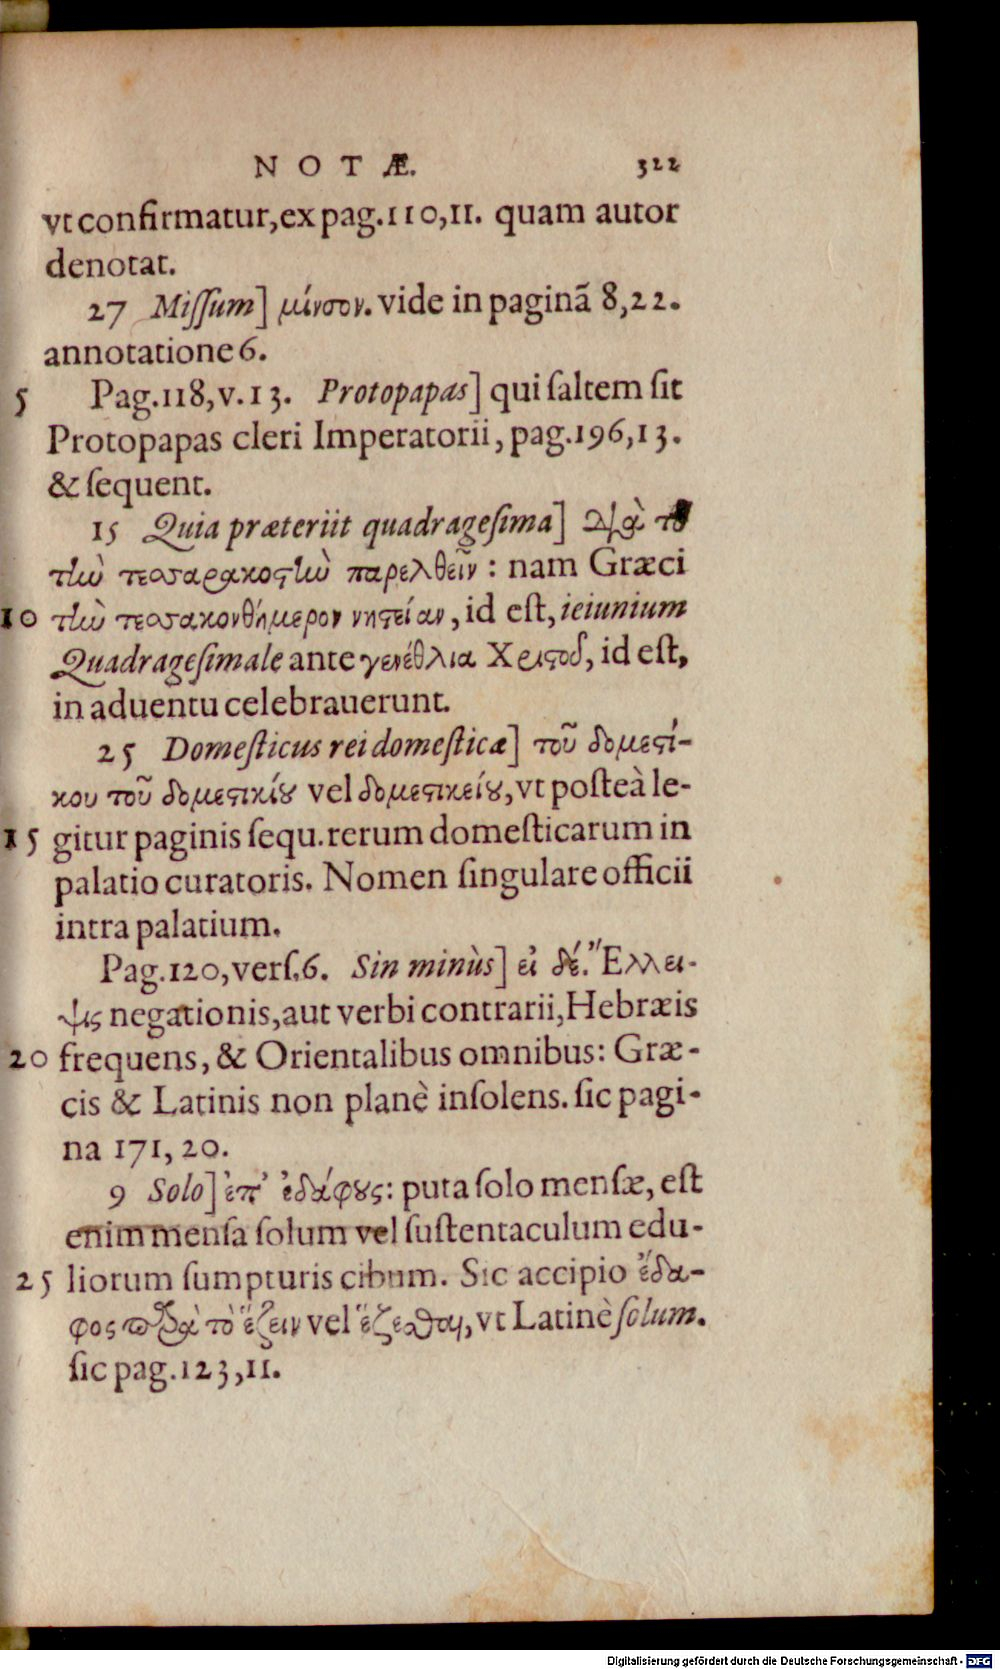 NOTÆ. 322
vt confirmatur, ex pag. 110, 11. quam autor
denotat.
27 Missum] μίνσον. vide in paginã 8, 22.
annotatione 6.
5 Pag. 118, v. 13. Protopapas] qui saltem sit
Protopapas cleri Imperatorii, pag. 196, 13.
& sequent.
15 Quia præteriit quadragesima] διὰ τὸ
τὴν τεσσαρακοστὴν παρελθεῖν: nam Græci
10 τὴν τεσσακονθήμερον νηστείαν, id est, ieiunium
Quadragesimale ante γενέθλια Χριστοῦ, id est,
in aduentu celebrauerunt.
25 Domesticus rei domesticæ] τοῦ δομεστί-
κου τοῦ δομεστικίου vel δομεστικείου, vt posteà le-
15 gitur paginis sequ. rerum domesticarum in
palatio curatoris. Nomen singulare officii
intra palatium.
Pag. 120, vers. 6. Sin minùs] εἰ δέ. Ἔλλει-
ψις negationis, aut verbi contrarii, Hebræis
20 frequens, & Orientalibus omnibus: Græ-
cis & Latinis non planè insolens. sic pagi-
na 171, 20.
9 Solo] ἐπ' ἐδάφους: puta solo mensæ, est
enim mensa solum vel sustentaculum edu-
25 liorum sumpturis cibum. Sic accipio ἔδα-
φος παρὰ τὸ ἕζειν vel ἕζεσθαι, vt Latinè solum.
sic pag. 123, 11.
Digitalisierung gefördert durch die Deutsche Forschungsgemeinschaft - DFG